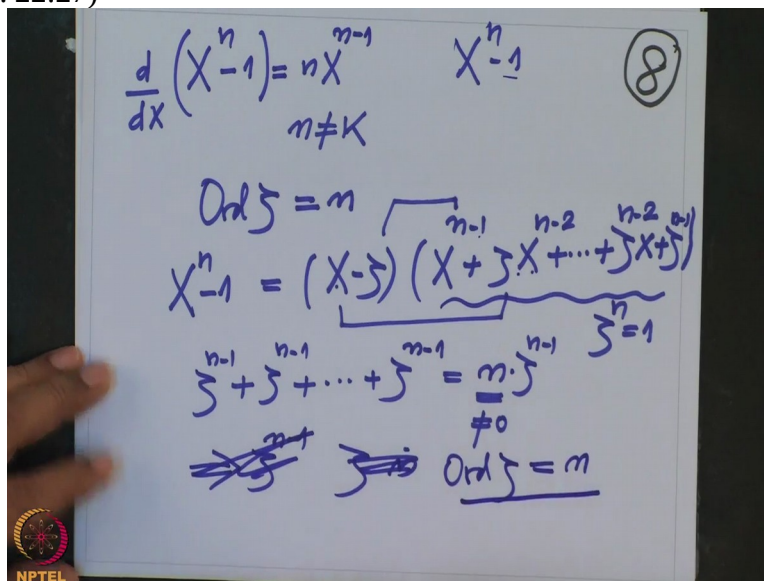 d/dX (Xⁿ-1) = nXⁿ⁻¹ Xⁿ-1 ⑧
n≠K
Ord ζ = n
Xⁿ-1 = (X-ζ)(Xⁿ⁻¹+ζXⁿ⁻²+⋯+ζⁿ⁻²X+ζⁿ⁻¹)
ζⁿ=1
ζⁿ⁻¹+ζⁿ⁻¹+⋯+ζⁿ⁻¹ = n·ζⁿ⁻¹
≠0
Ord ζ = n
NPTEL